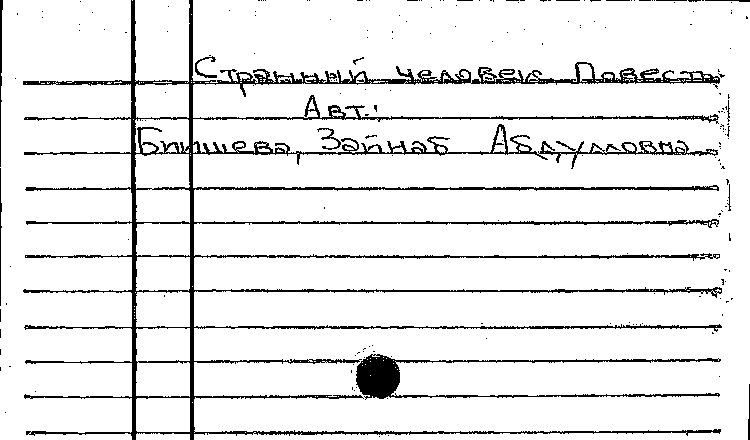 Странный человек Повесть
Авт.:
Биишева, Зайнаб Абдулловна